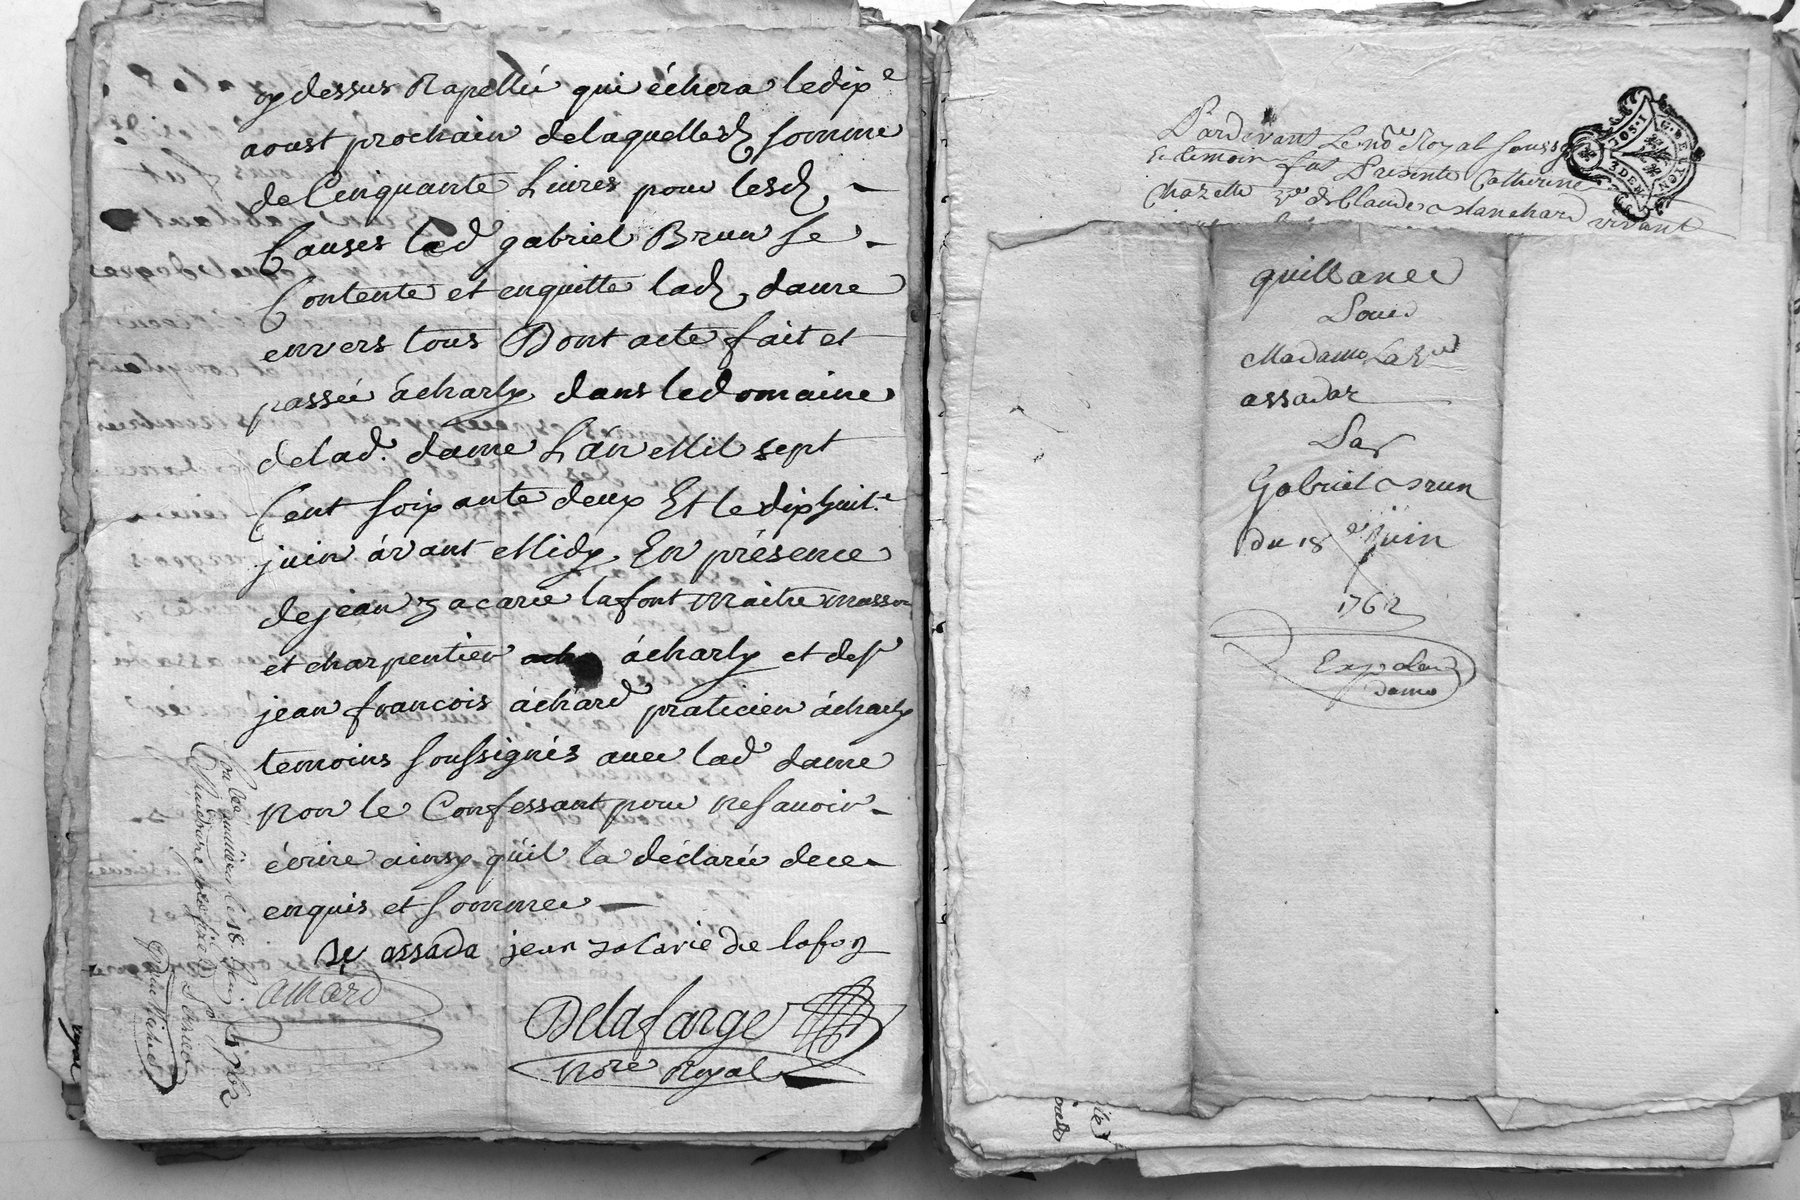 cy dessus Rapellée qui échera le dixe
aoust prochain de laquelled somme
de Cinquante Livres pour lesd
Causes led gabriel Brun se
Contente et enquitte lad dame
envers tous Dont acte fait et
passée à charly dans le domaine
de lad. dame L'an Mil sept
Cent soixante deux Et le dix huite
juin avant Midy En présence
de jean zacarie lafont maitre masson
et charpentier à charly et de sr
jean françois áchard praticien á charly
temoins soussignés avec lad dame
non le Confessant pour ne savoir
écrire ainsy qu'il la déclaré de ce
enquis et sommé
assada jean zacarie de lafon
achard
Delafarge
Nore Royal
Pardevant Le nore Royal soussg
fut Présente Catherine
Chazette ve de Claude Blanchard vivant
G. DE LYON
2 DEN
quittance
Pour
Madame La Ve
assadaz
Par
Gabriel Brun
du 18e Juin
1762
Exp. la
dame